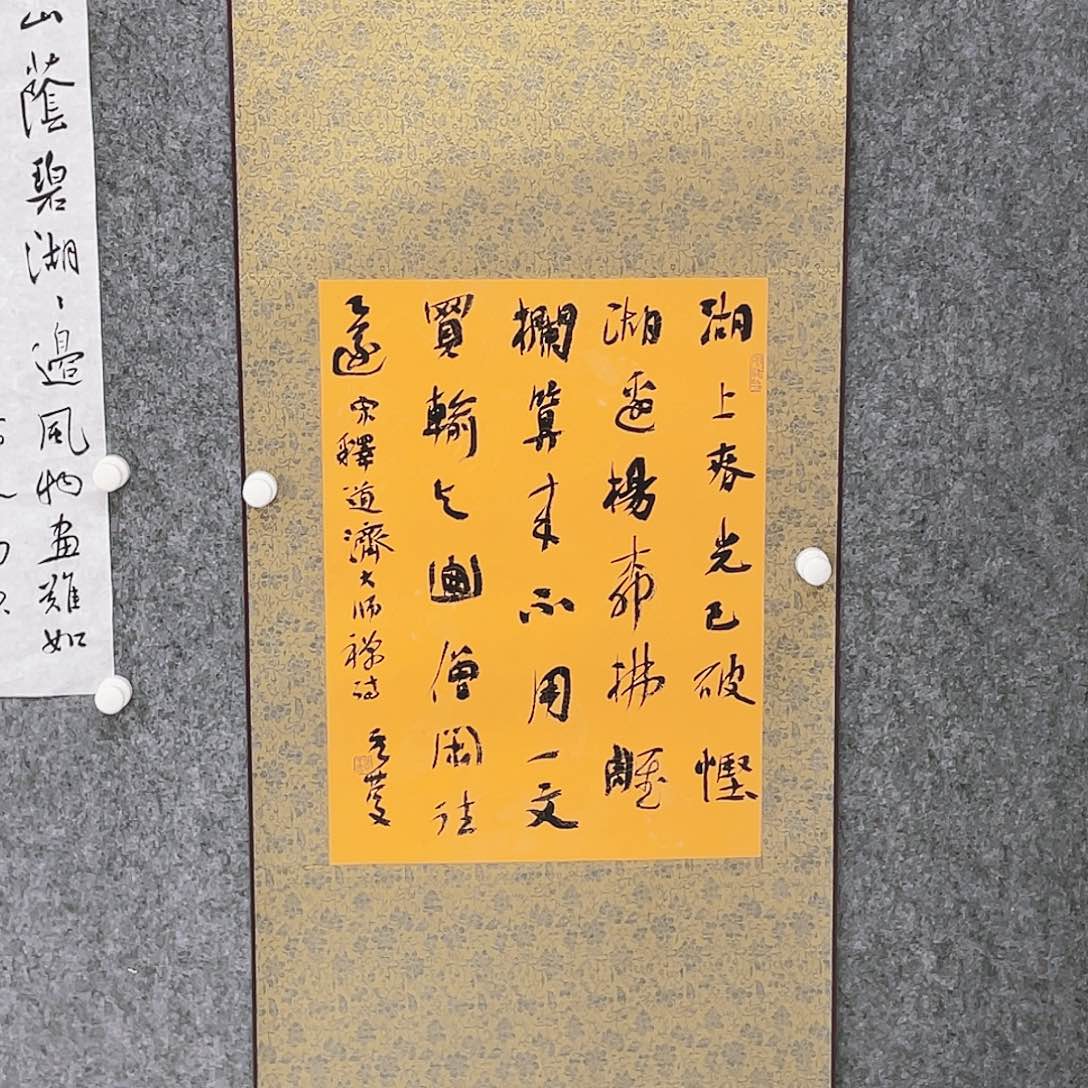 湖上春光已破慳
湖邊楊柳拂雕
欄算来不用一文
買輸与僧閑往
還 宋釋道濟大師禪詩
山蔭碧湖、邊風物畫難如